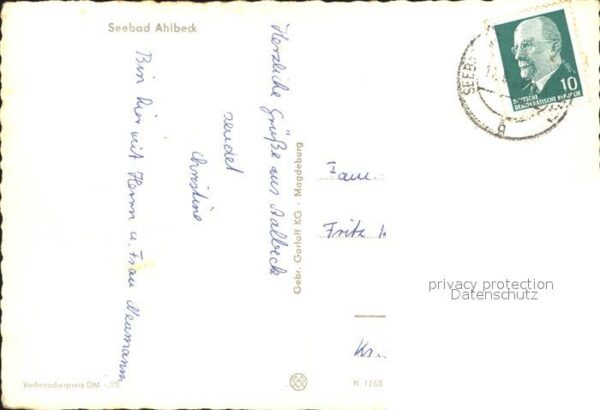 Seebad Ahlbeck
Herzliche Grüße aus Aalbeck
sendet
Christine
Bin hier mit Herrn u. Frau Neumann
Gebr. Garloff KG - Magdeburg
Fam.
Fritz
Kr.
10
DEUTSCHE
DEMOKRATISCHE REPUBLIK
SEEB
privacy protection
Datenschutz
Verbraucherpreis DM -,20
N 1/63